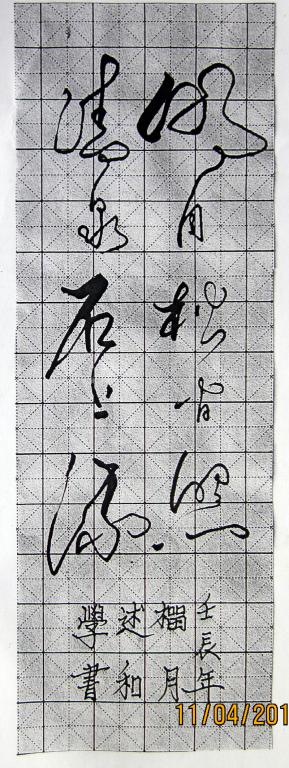 明月松間照
清泉石上流
壬辰年
桐月
述和
學書
11/04/201